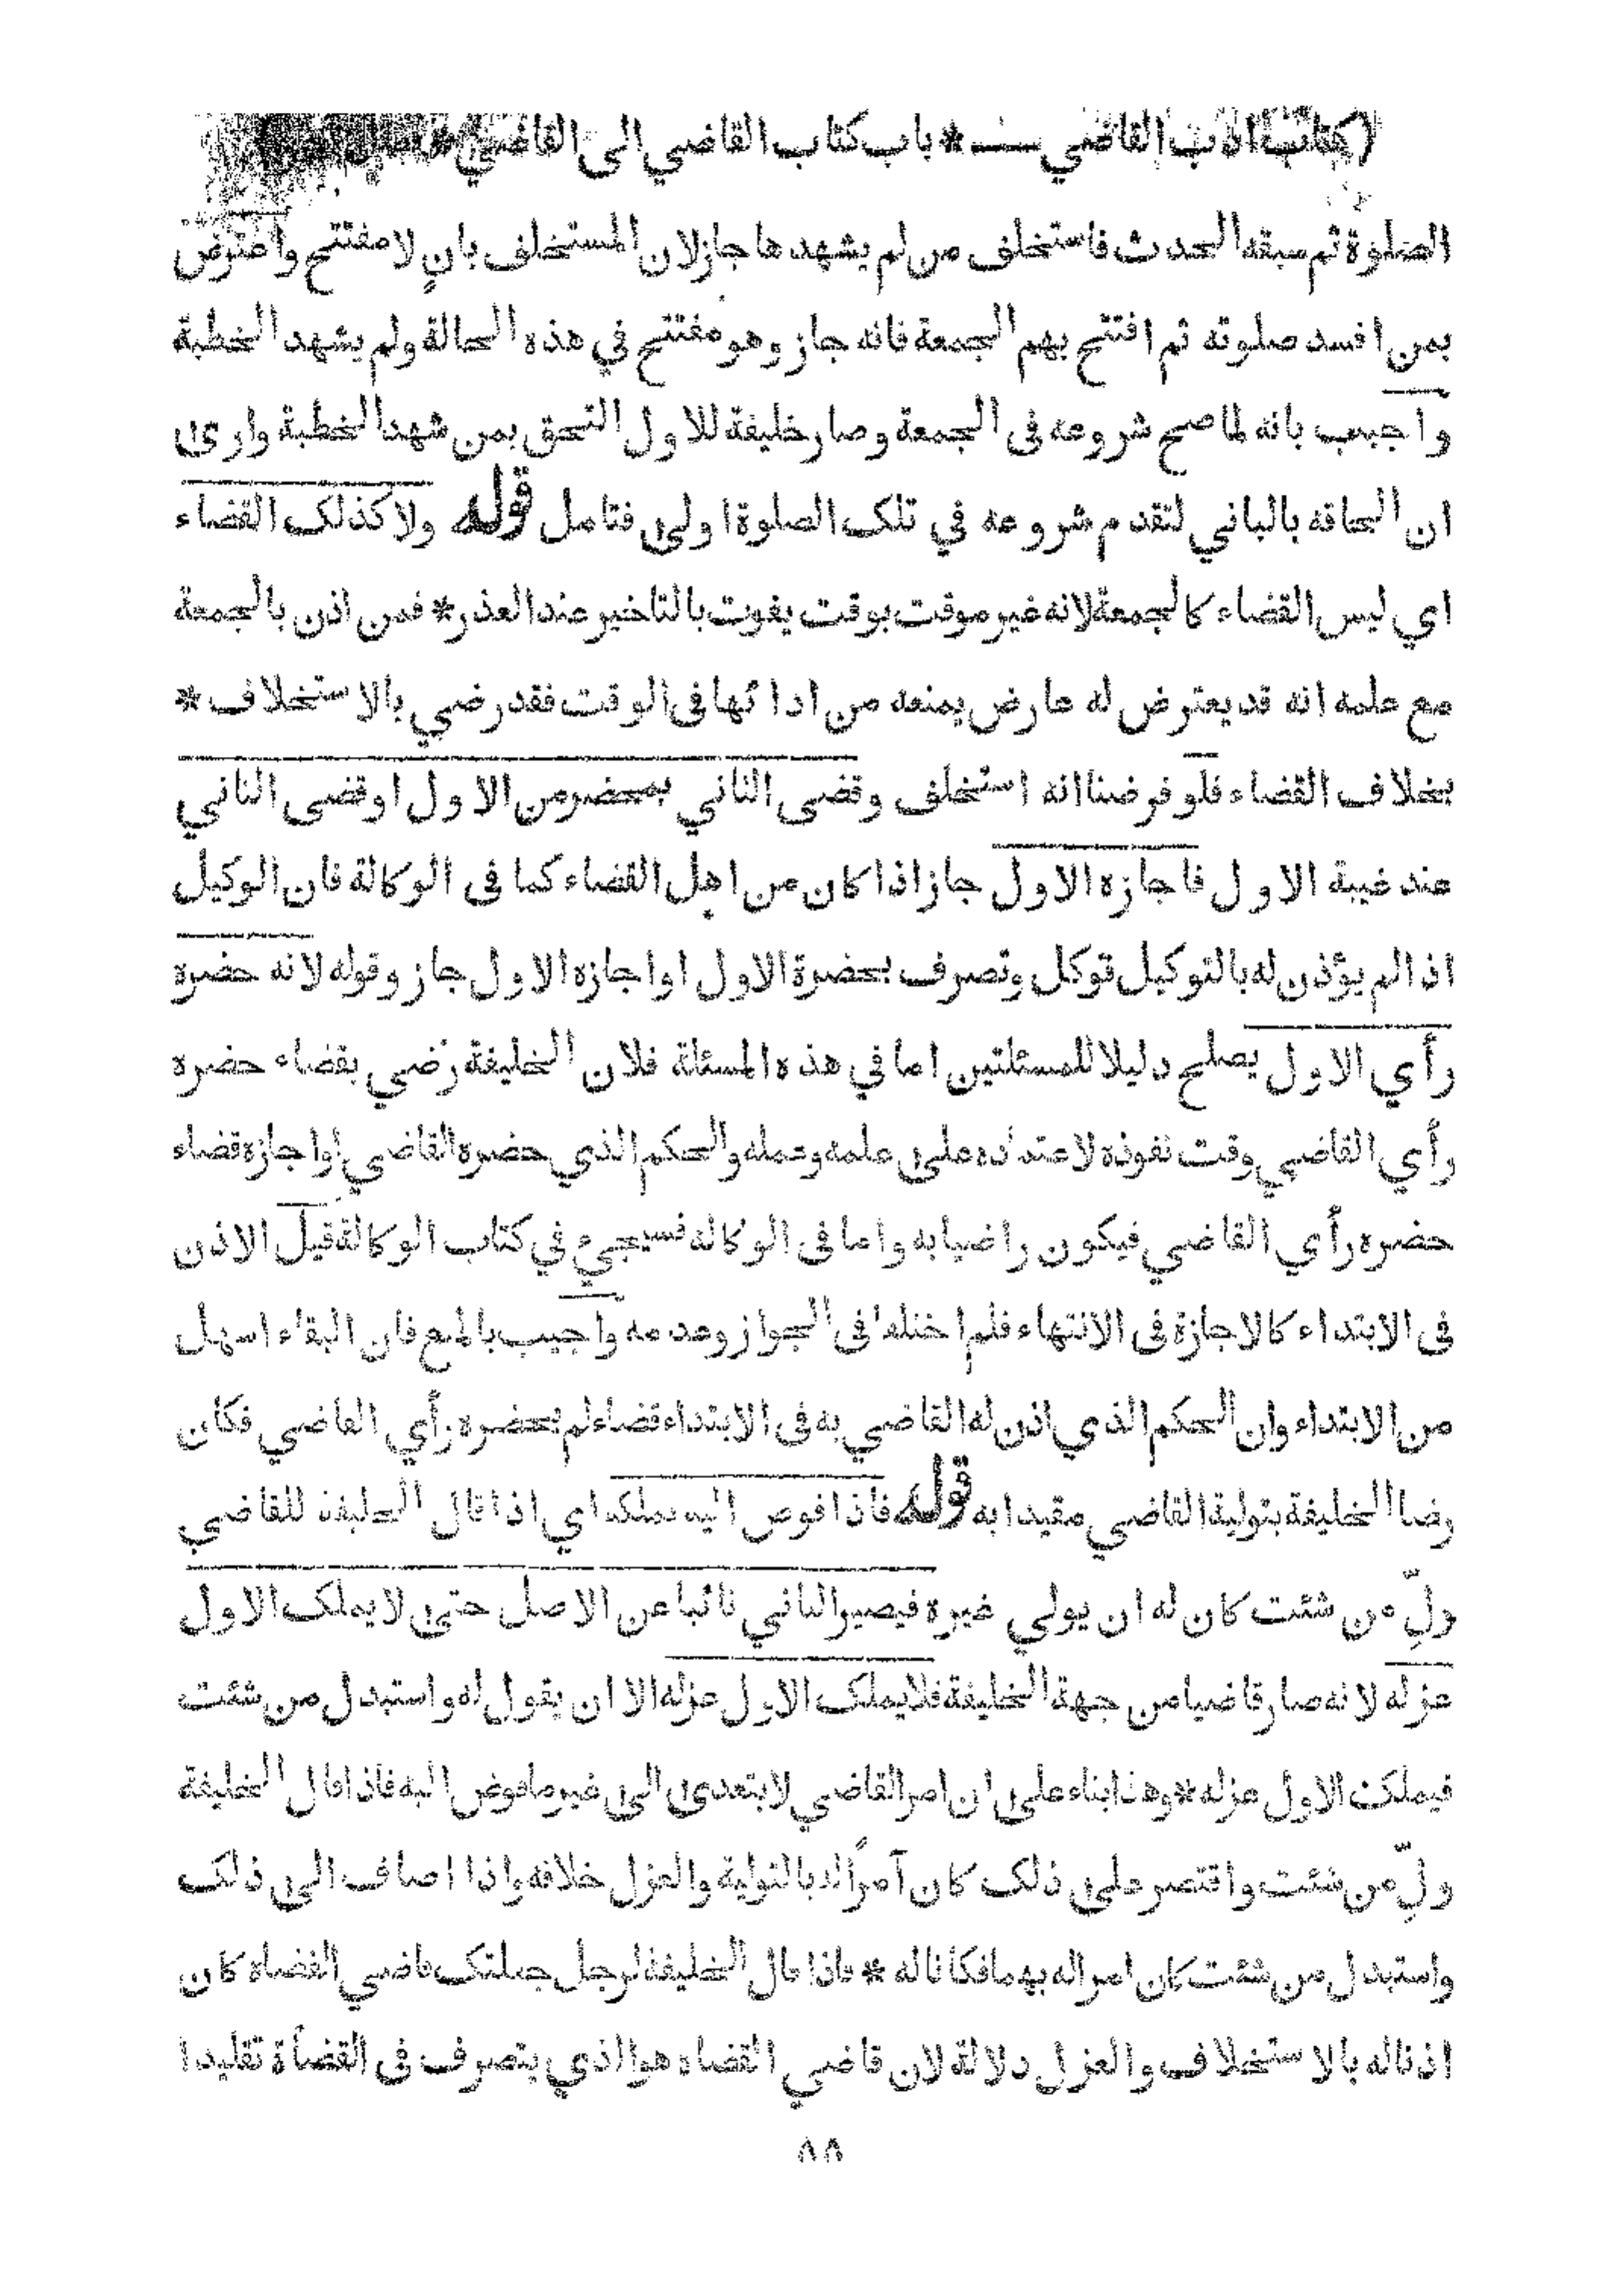 (كتاب ادب القاضي — * باب كتاب القاضي الى القاضي *
الصلوة ثم سبقه الحدث فاستخلف من لم يشهدها جاز لان المستخلف بانٍ لا مفتتح واعترض
بمن افسد صلوته ثم افتتح بهم الجمعة فانه جاز وهو مفتتح في هذه الحالة ولم يشهد الخطبة
واجيب بانه لما صح شروعه في الجمعة وصار خليفة للاول التحق بمن شهد الخطبة وارى
ان الحاقه بالباني لتقدم شروعه في تلك الصلوة اولى فتامل قوله ولا كذلك القضاء
اي ليس القضاء كالجمعة لانه غير موقت بوقت يفوت بالتاخير عند العذر * فمن اذن بالجمعة
مع علمه انه قد يعترض له عارض يمنعه من ادائها في الوقت فقد رضي بالاستخلاف *
بخلاف القضاء فلو فرضنا انه استخلف وقضى الثاني بمحضر من الاول او قضى الثاني
عند غيبة الاول فاجازه الاول جاز اذا كان من اهل القضاء كما في الوكالة فان الوكيل
اذا لم يؤذن له بالتوكيل توكل وتصرف بحضرة الاول او اجازه الاول جاز وقوله لانه حضره
رأي الاول يصلح دليلا للمسئلتين اما في هذه المسئلة فلان الخليفة رضي بقضاء حضره
رأي القاضي وقت نفوذه لاعتماده على علمه وعمله والحكم الذي حضره القاضي او اجازه قضاء
حضره رأي القاضي فيكون راضيا به واما في الوكاله فسيجيء في كتاب الوكالة قيل الاذن
في الابتداء كالاجازة في الانتهاء فلم اختلفا في الجواز وعدمه واجيب بالمنع فان البقاء اسهل
من الابتداء وان الحكم الذي اذن له القاضي به في الابتداء قضاء لم يحضره رأي القاضي فكان
رضا الخليفة بتولية القاضي مقيدا به قوله فاذا فوض اليه يملكه اي اذا قال الخليفة للقاضي
ولِّ من شئت كان له ان يولي غيره فيصير الثاني نائبا عن الاصل حتى لا يملك الاول
عزله لانه صار قاضيا من جهة الخليفة فلا يملك الاول عزله الا ان يقول له واستبدل من شئت
فيملك الاول عزله * وهذا بناء على ان امر القاضي لا يتعدى الى غير ما فوض اليه فاذا قال الخليفة
ولِّ من شئت واقتصر على ذلك كان آمراً له بالتولية والعزل خلافه واذا اضاف الى ذلك
واستبدل من شئت كان امرا له بهما فكانا له * فاذا قال الخليفة لرجل جعلتك قاضي القضاة كان
اذنا له بالاستخلاف والعزل دلالة لان قاضي القضاه هو الذي يتصرف في القضأة تقليدا
٨٨